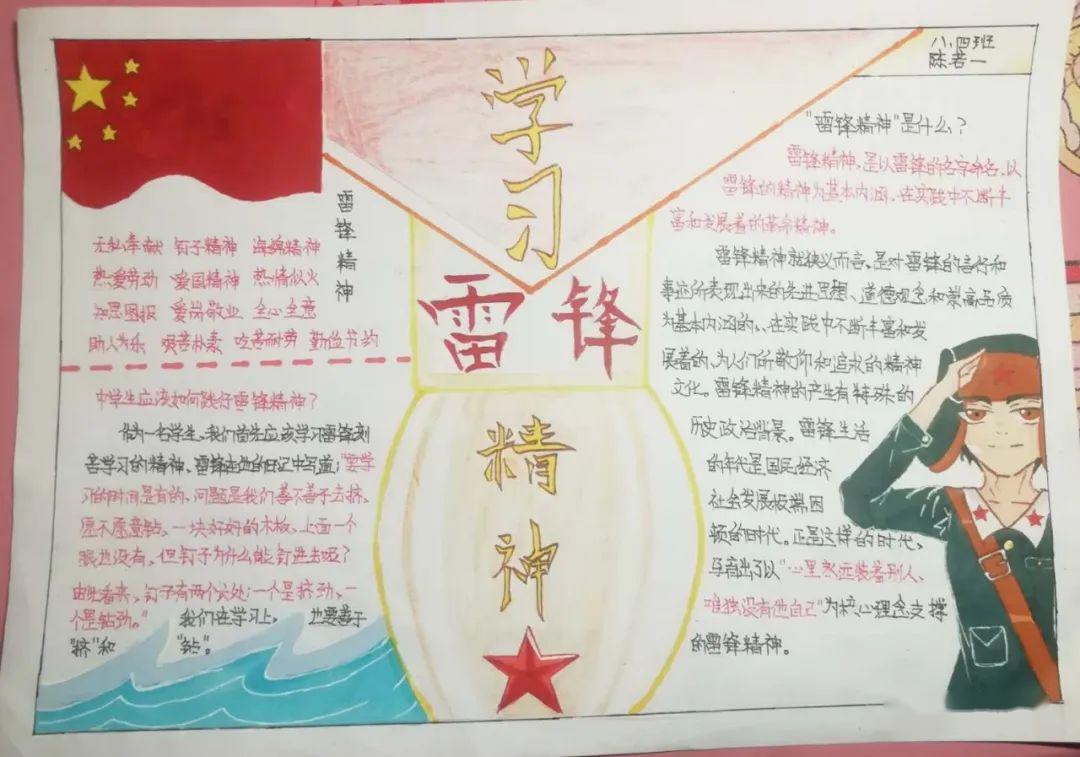 学习
雷锋
精神
八.四班
陈若一
雷锋精神
无私奉献 钉子精神 海绵精神
热爱劳动 爱国精神 热情似火
知恩图报 爱岗敬业 全心全意
助人为乐 艰苦朴素 吃苦耐劳 勤俭节约
中学生应该如何践行雷锋精神?
作为一名学生,我们首先应该学习雷锋刻
苦学习的精神、雷锋在他的日记中写道:“要学
习的时间是有的,问题是我们善不善于去挤、
愿不愿意钻、一块好好的木板、上面一个
眼也没有、但钉子为什么能钉进去呢?
由此看来、钉子有两个长处:一个是挤劲、一
个是钻劲。” 我们在学习上, 也要善于
“挤”和 “钻”。
“雷锋精神”是什么?
雷锋精神、是以雷锋的名字命名、以
雷锋的精神为基本内涵、在实践中不断丰
富和发展着的革命精神。
雷锋精神就狭义而言、是对雷锋的言行和
事迹所表现出来的先进思想、道德观念和崇高品质
为基本内涵的、在实践中不断丰富和发
展着的、为人们所敬仰和追求的精神
文化。雷锋精神的产生有特殊的
历史政治背景。雷锋生活
的年代是国民经济
社会发展极端困
顿的时代。正是这样的时代、
孕育出了以“心里永远装着别人、
唯独没有他自己”为核心理念支撑
的雷锋精神。